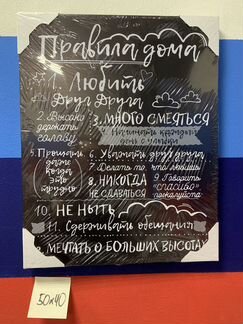 Правила дома
1. Любить
Друг Друга
2. Высоко
держать
голову
3. МНОГО СМЕЯТЬСЯ
Начинать каждый
день с улыбки
5. Прощать
даже
когда
это
трудно
6. Уважать друг друга
7. Делать то, что любишь
8. НИКОГДА
НЕ СДАВАТЬСЯ
9. Говорить
"спасибо",
"пожалуйста"
10. НЕ НЫТЬ
11. Сдерживать обещания
МЕЧТАТЬ О БОЛЬШИХ ВЫСОТАХ
50х40